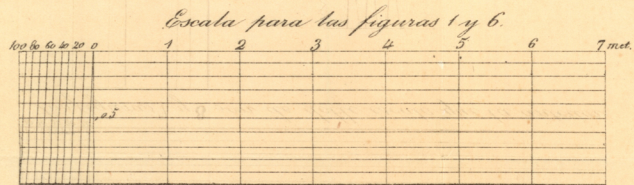 Escala para las figuras 1 y 6.
100 80 60 40 20 0 1 2 3 4 5 6 7 met.
0.5